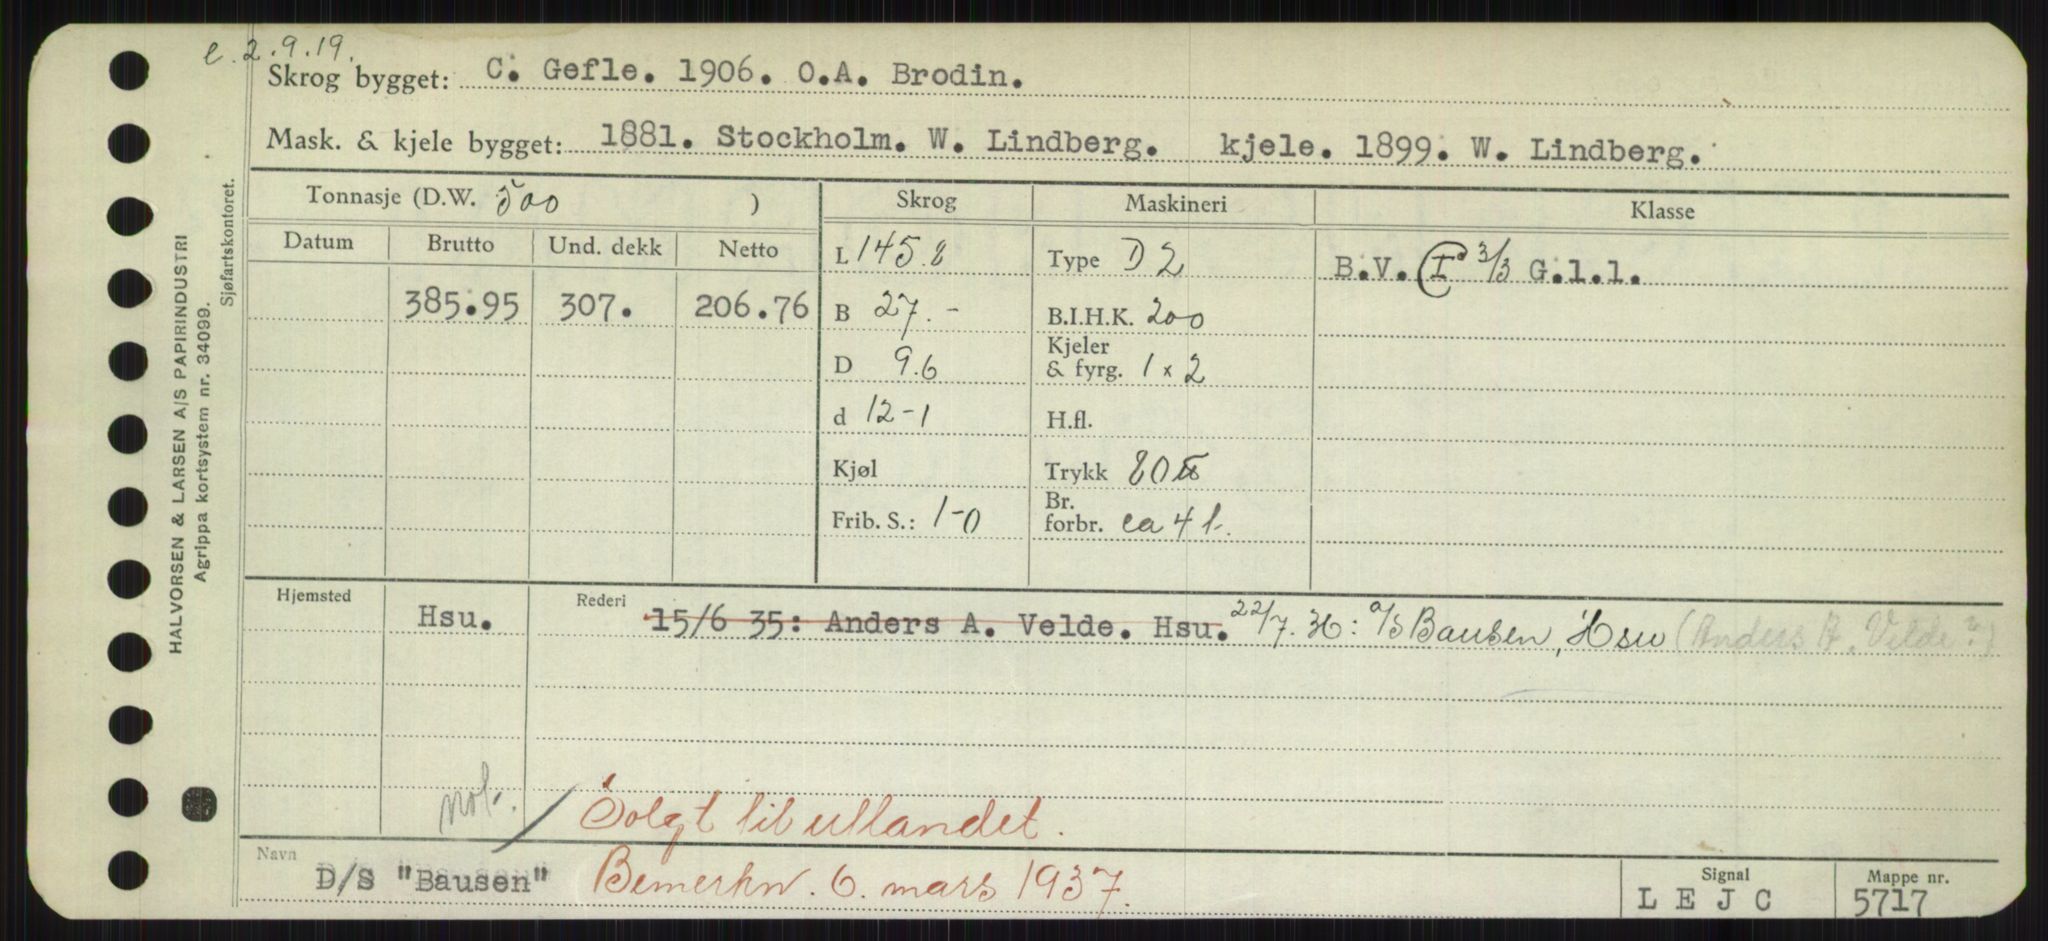 e. 2.9.19.
Skrog bygget: C. Gefle. 1906. O.A. Brodin.
Mask. & kjele bygget: 1881. Stockholm. W. Lindberg. kjele. 1899. W. Lindberg.
Tonnasje (D.W. 500 ) Skrog Maskineri Klasse
Datum Brutto Und. dekk Netto
L 145.8 Type D 2 B.V. I 3/3 G.l.l.
385.95 307. 206.76 B 27.- B.I.H.K. 200
D 9.6 Kjeler & fyrg. 1 x 2
d 12-1 H.fl.
Kjøl Trykk 80 lb
Frib. S.: 1-0 Br. forbr. ca 4 t.
Hjemsted Hsu. Rederi 15/6 35: Anders A. Velde. Hsu. 22/7. 36: A/S Bausen, Hsu (Anders A. Velde?)
not. / Solgt til utlandet.
Navn D/S "Bausen" Bemerkn. 6. mars 1937.
Signal LEJC Mappe nr. 5717
HALVORSEN & LARSEN A/S PAPIRINDUSTRI
Agrippa kortsystem nr. 34099.
Sjøfartskontoret.